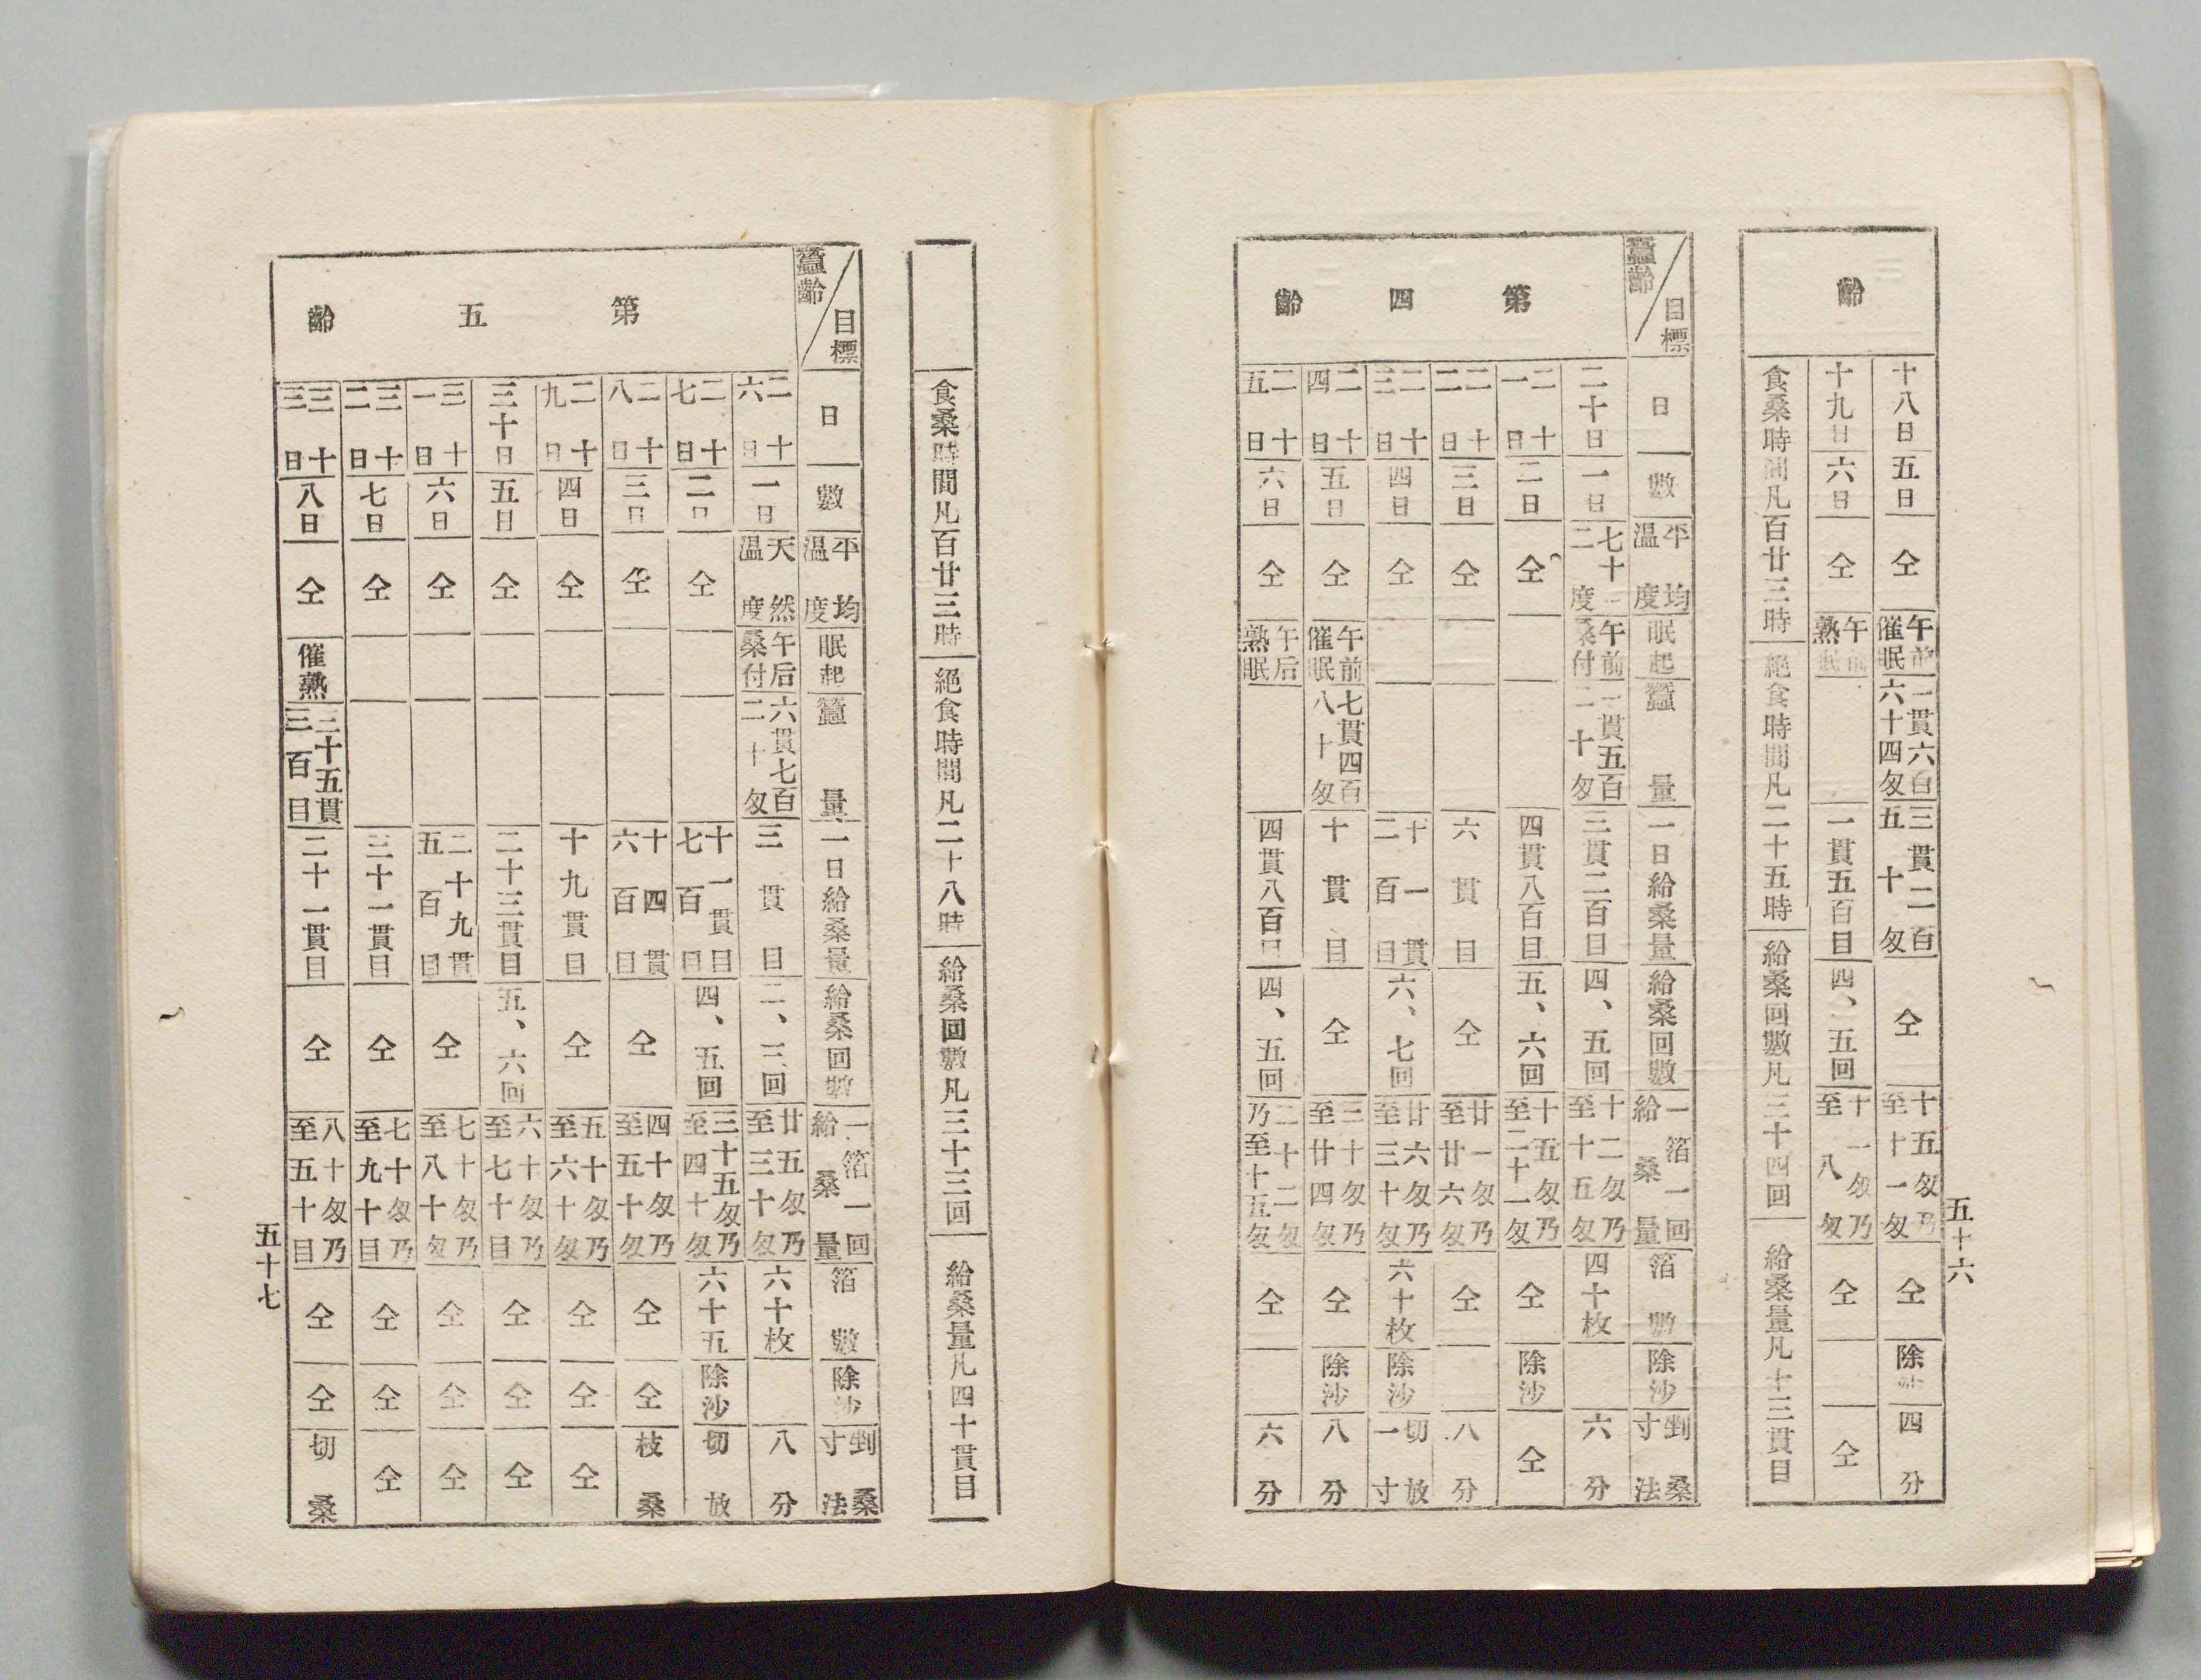 齡
十八日 五日 仝 午前催眠 一貫六百六十四匁 三貫二百五十匁 仝 十五匁乃至十一匁 仝 除沙 四分
十九日 六日 仝 午前熟眠 一貫五百目 四、五回 十一匁乃至八匁 仝 仝
食桑時間凡百廿三時 絕食時間凡二十五時 給桑回數凡三十四回 給桑量凡十三貫目
五十六
蠶齡 目標 日數 平均溫度 眠起 蠶量 一日給桑量 給桑回數 一箔一回給桑量 箔數 除沙 剉桑寸法
第四齡
二十日 一日 七十二度 午前桑付 一貫五百二十匁 三貫二百目 四、五回 十二匁乃至十五匁 四十枚 六分
二十一日 二日 仝 四貫八百目 五、六回 十五匁乃至二十一匁 仝 除沙 仝
二十二日 三日 仝 六貫目 仝 廿一匁乃至廿六匁 仝 八分
二十三日 四日 仝 十一貫二百目 六、七回 廿六匁乃至三十匁 六十枚 除沙 切放一寸
二十四日 五日 仝 午前催眠 七貫四百八十匁 十貫目 仝 三十匁乃至廿四匁 仝 除沙 八分
二十五日 六日 仝 午后熟眠 四貫八百目 四、五回 二十二匁乃至十五匁 仝 六分
食桑時間凡百廿三時 絕食時間凡二十八時 給桑回數凡三十三回 給桑量凡四十貫目
蠶齡 目標 日數 平均溫度 眠起 蠶量 一日給桑量 給桑回數 一箔一回給桑量 箔數 除沙 剉桑寸法
第五齡
二十六日 一日 天然溫度 午后桑付 六貫七百二十匁 三貫目 二、三回 廿五匁乃至三十匁 六十枚 八分
二十七日 二日 仝 十一貫七百目 四、五回 三十五匁乃至四十匁 六十五 除沙 切放
二十八日 三日 仝 十四貫六百目 仝 四十匁乃至五十匁 仝 仝 枝桑
二十九日 四日 仝 十九貫目 仝 五十匁乃至六十匁 仝 仝 仝
三十日 五日 仝 二十三貫目 五、六回 六十匁乃至七十目 仝 仝 仝
三十一日 六日 仝 二十九貫五百目 仝 七十匁乃至八十匁 仝 仝 仝
三十二日 七日 仝 三十一貫目 仝 七十匁乃至九十目 仝 仝 仝
三十三日 八日 仝 催熟 三十五貫三百目 二十一貫目 仝 八十匁乃至五十目 仝 仝 切桑
五十七